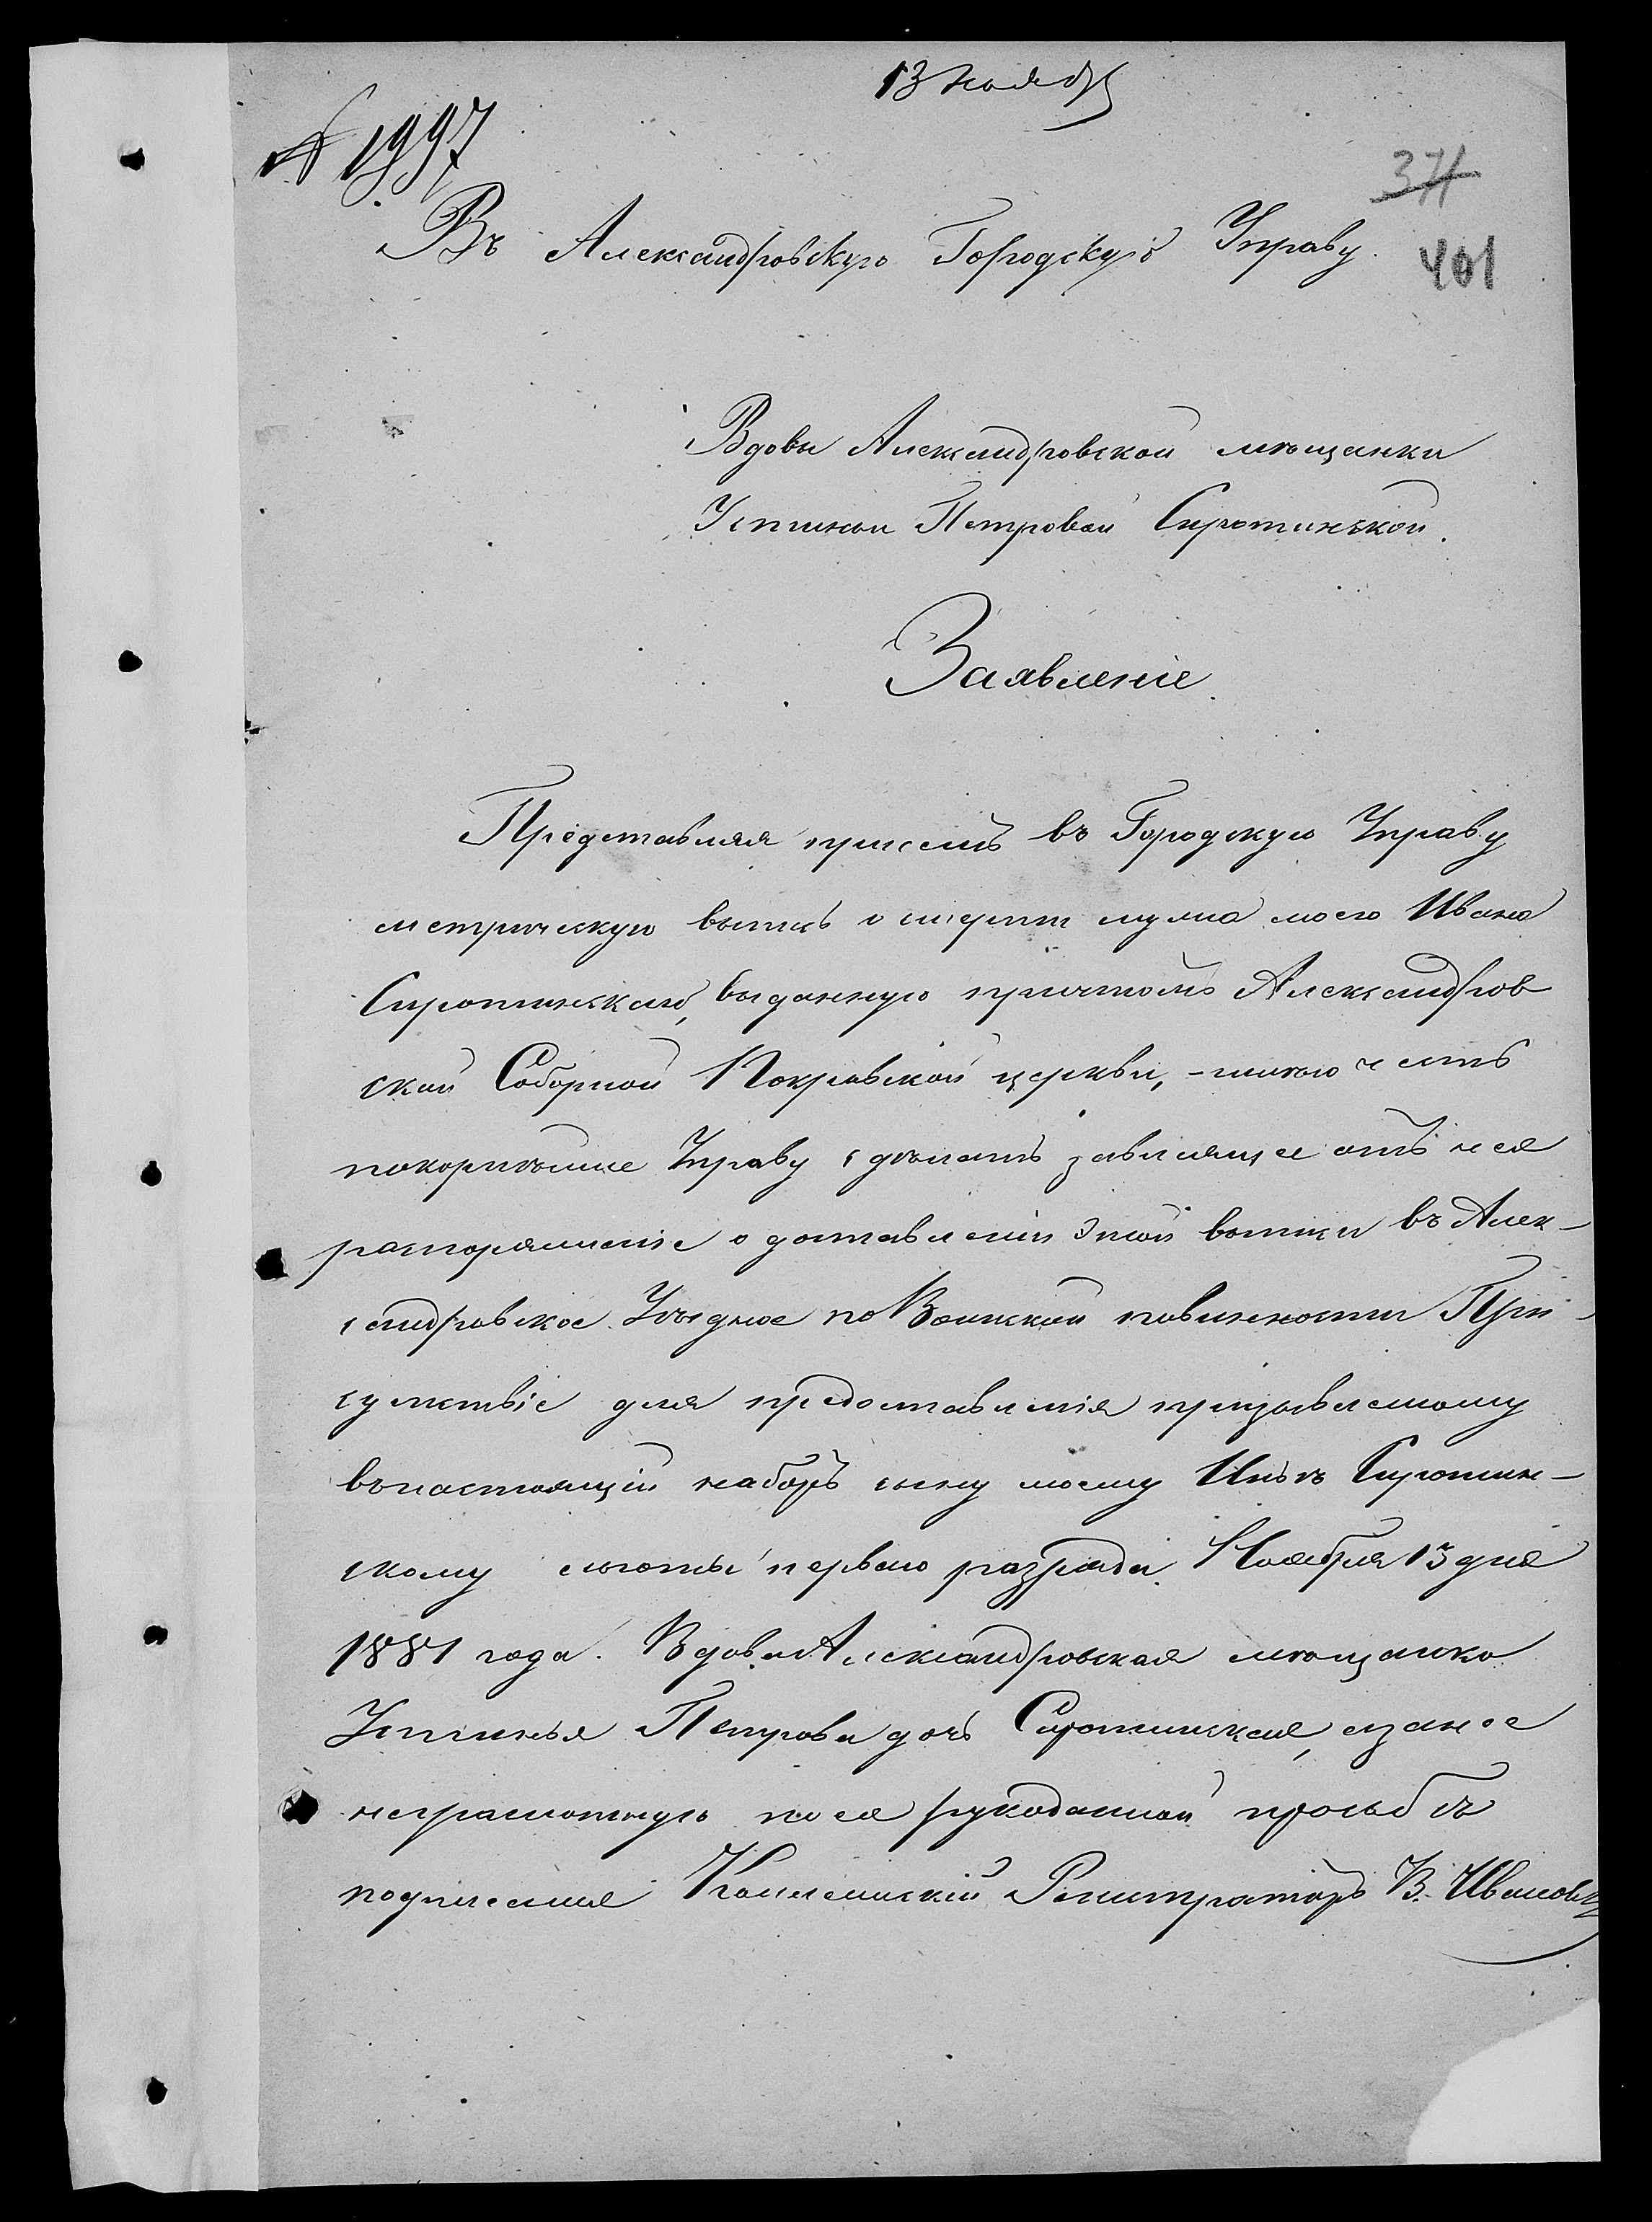 13 Ноябр
№ 1997
371
Въ Александровскую Городскую Управу.
401
Вдовы Александровской мѣщанки
Устиньи Петровой Сиротинской.
Заявленіе.
Представляя присемъ въ Городскую Управу
метрическую выпись о смерти мужа моего Ивана
Сиротинскаго, выданную причтомъ Александров
ской Соборной Покровской церкви, - имѣю честь
покорнѣйше Управу сдѣлать зависящее отъ нея
распоряженіе о доставленіи этой выписи въ Алек-
сандровское Уѣздное по Воинской повинности При-
сутствіе для предоставленія призываемому
въ настоящій наборъ сыну моему Сиротин-
скому льготы перваго разряда. Ноября 13 дня
1881 года. Вдова Александровская мѣщанка
Устинья Петрова дочь Сиротинская, а за нее
неграмотную по ея рукоданной просьбѣ
подписался Коллежскій Регистраторъ В. Ивановъ